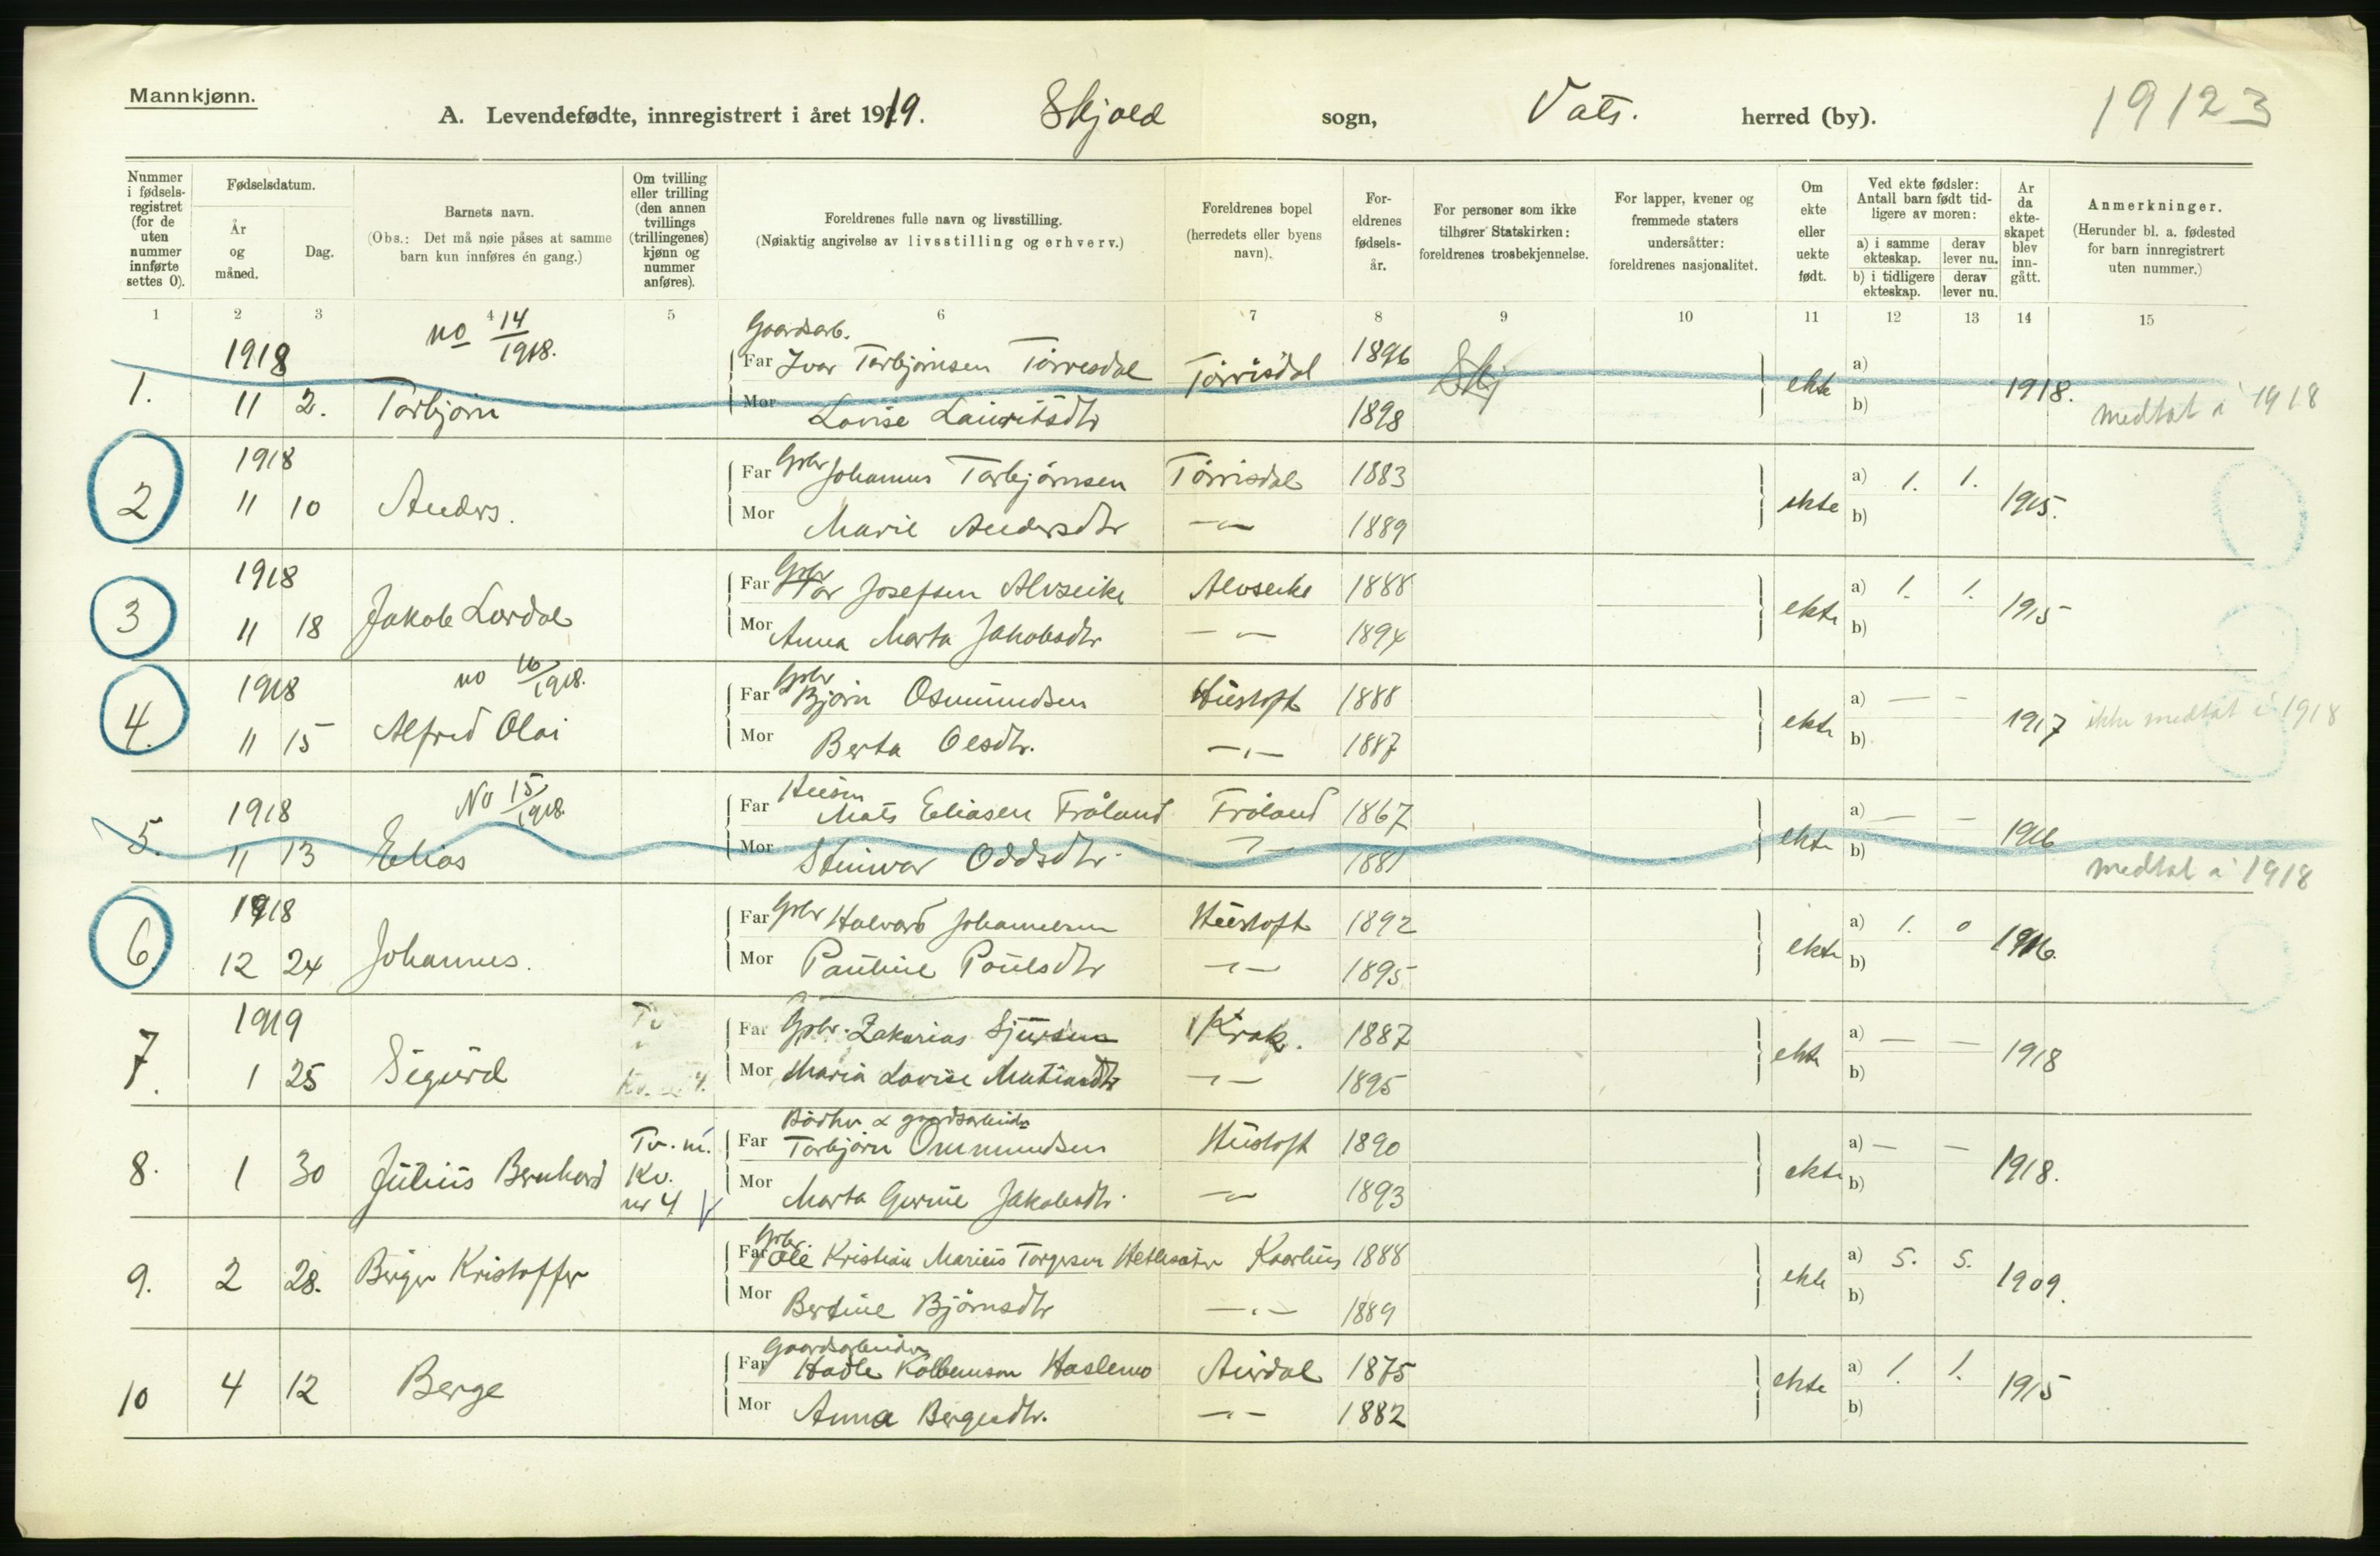 Mannkjønn.
A. Levendefødte, innregistrert i året 1919. Skjold sogn, Vats. herred (by). 19123
Nummer i fødsels-registret (for de uten nummer innførte settes 0).
Fødselsdatum.
År og måned.
Dag.
Barnets navn.
(Obs.: Det må nøie påses at samme barn kun innføres én gang.)
Om tvilling eller trilling (den annen tvillings (trillingenes) kjønn og nummer anføres).
Foreldrenes fulle navn og livsstilling.
(Nøiaktig angivelse av livsstilling og erhverv.)
Foreldrenes bopel (herredets eller byens navn).
For-eldrenes fødsels-år.
For personer som ikke tilhører Statskirken: foreldrenes trosbekjennelse.
For lapper, kvener og fremmede staters undersåtter: foreldrenes nasjonalitet.
Om ekte eller uekte født.
Ved ekte fødsler: Antall barn født tid-ligere av moren:
a) i samme ekteskap.
derav lever nu.
b) i tidligere ekteskap.
derav lever nu.
År da ekte-skapet blev inn-gått.
Anmerkninger.
(Herunder bl. a. fødested for barn innregistrert uten nummer.)
1 2 3 4 5 6 7 8 9 10 11 12 13 14 15
no 14/1918. Gaardsarb.
1918 Far Ivar Torbjørnsen Tørresdal Tørrisdal 1896 Skj a)
1. 11 2. Torbjørn Mor Lovise Lauritsdtr 1898 ekte b) 1918. medtat i 1918
1918 Far Gbr Johannes Torbjørnsen Tørrisdal 1883 a) 1. 1.
2 11 10 Anders. Mor Marie Andersdtr —"— 1889 ekte b) 1915.
1918 Far Gbr Josefsen Alvseike Alvseike 1888 a) 1. 1.
3 11 18 Jakob Lordal Mor Anna Marta Jakobsdtr —"— 1894 ekte b) 1915
no 16/1918.
1918 Far Gbr Bjørn Osmundsen Hustoft 1888 a) — —
4. 11 15 Alfred Olai Mor Berta Olsdtr. —"— 1887 ekte b) 1917 ikke medtat i 1918
No 15/1918. Husm
1918 Far Mats Eliasen Fråland Fråland 1867 a) — —
5. 11 13 Elias Mor Steinvor Oddsdtr. —"— 1881 ekte b) 1916 medtat i 1918
1918 Far Gbr Halvard Johannesen Hustoft 1892 a) 1. 0
6. 12 24 Johannes. Mor Pauline Poulsdtr —"— 1895 ekte b) 1916.
1919 Tv Far Gbr. Zakarias Sjursen Krak. 1887 a) — —
7. 1 25 Sigurd Kv. 4. Mor Maria Lovise Matiasdtr —"— 1895 ekte b) 1918
Bødker & gaardsarbeider
Tv. m. Far Torbjørn Ommundsen Hustoft 1890 a) — —
8. 1 30 Julius Bernhard Kv. nr 4 Mor Marta Gurine Jakobsdtr. —"— 1893 ekte b) 1918.
Gbr.
Far Ole Kristian Marius Torgersen Hetlesæter Kaarhus 1888 a) 5. 5.
9. 2 28. Birger Kristoffer Mor Bertine Bjørnsdtr —"— 1889 ekte b) 1909.
Gaardsarbeider
Far Hadle Kolbeinson Haslemo Aurdal 1875 a) 1. 1.
10 4 12 Berge Mor Anna Bergesdtr. —"— 1882 ekte b) 1915